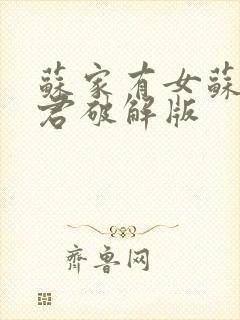 蘇家有女蘇
君破解版
齊魯网